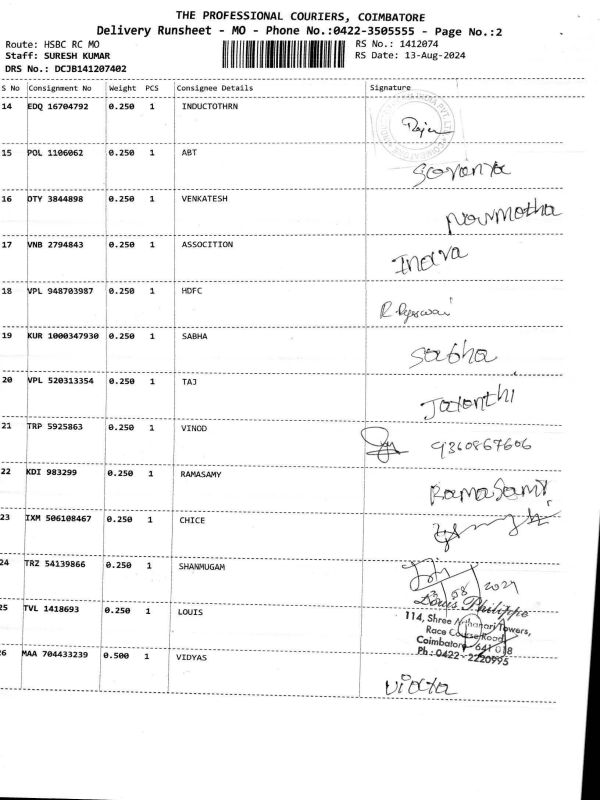 THE PROFESSIONAL COURIERS, COIMBATORE
Delivery Runsheet - MO - Phone No.:0422-3505555 - Page No.:2
Route: HSBC RC MO RS No.: 1412074
Staff: SURESH KUMAR RS Date: 13-Aug-2024
DRS No.: DCJB141207402
S No Consignment No Weight PCS Consignee Details Signature
14 EDQ 16704792 0.250 1 INDUCTOTHRN
15 POL 1106062 0.250 1 ABT
16 DTY 3844898 0.250 1 VENKATESH
17 VNB 2794843 0.250 1 ASSOCITION
18 VPL 948703987 0.250 1 HDFC
19 KUR 1000347930 0.250 1 SABHA Sabha
20 VPL 520313354 0.250 1 TAJ
21 TRP 5925863 0.250 1 VINOD 9360867606
22 KDI 983299 0.250 1 RAMASAMY Ramasami
23 IXM 506108467 0.250 1 CHICE
24 TRZ 54139866 0.250 1 SHANMUGAM
25 TVL 1418693 0.250 1 LOUIS
Louis Philippe
114, Shree Towers,
Race Course Road,
Coimbatore 641 018
Ph : 0422 - 2220995
26 MAA 704433239 0.500 1 VIDYAS